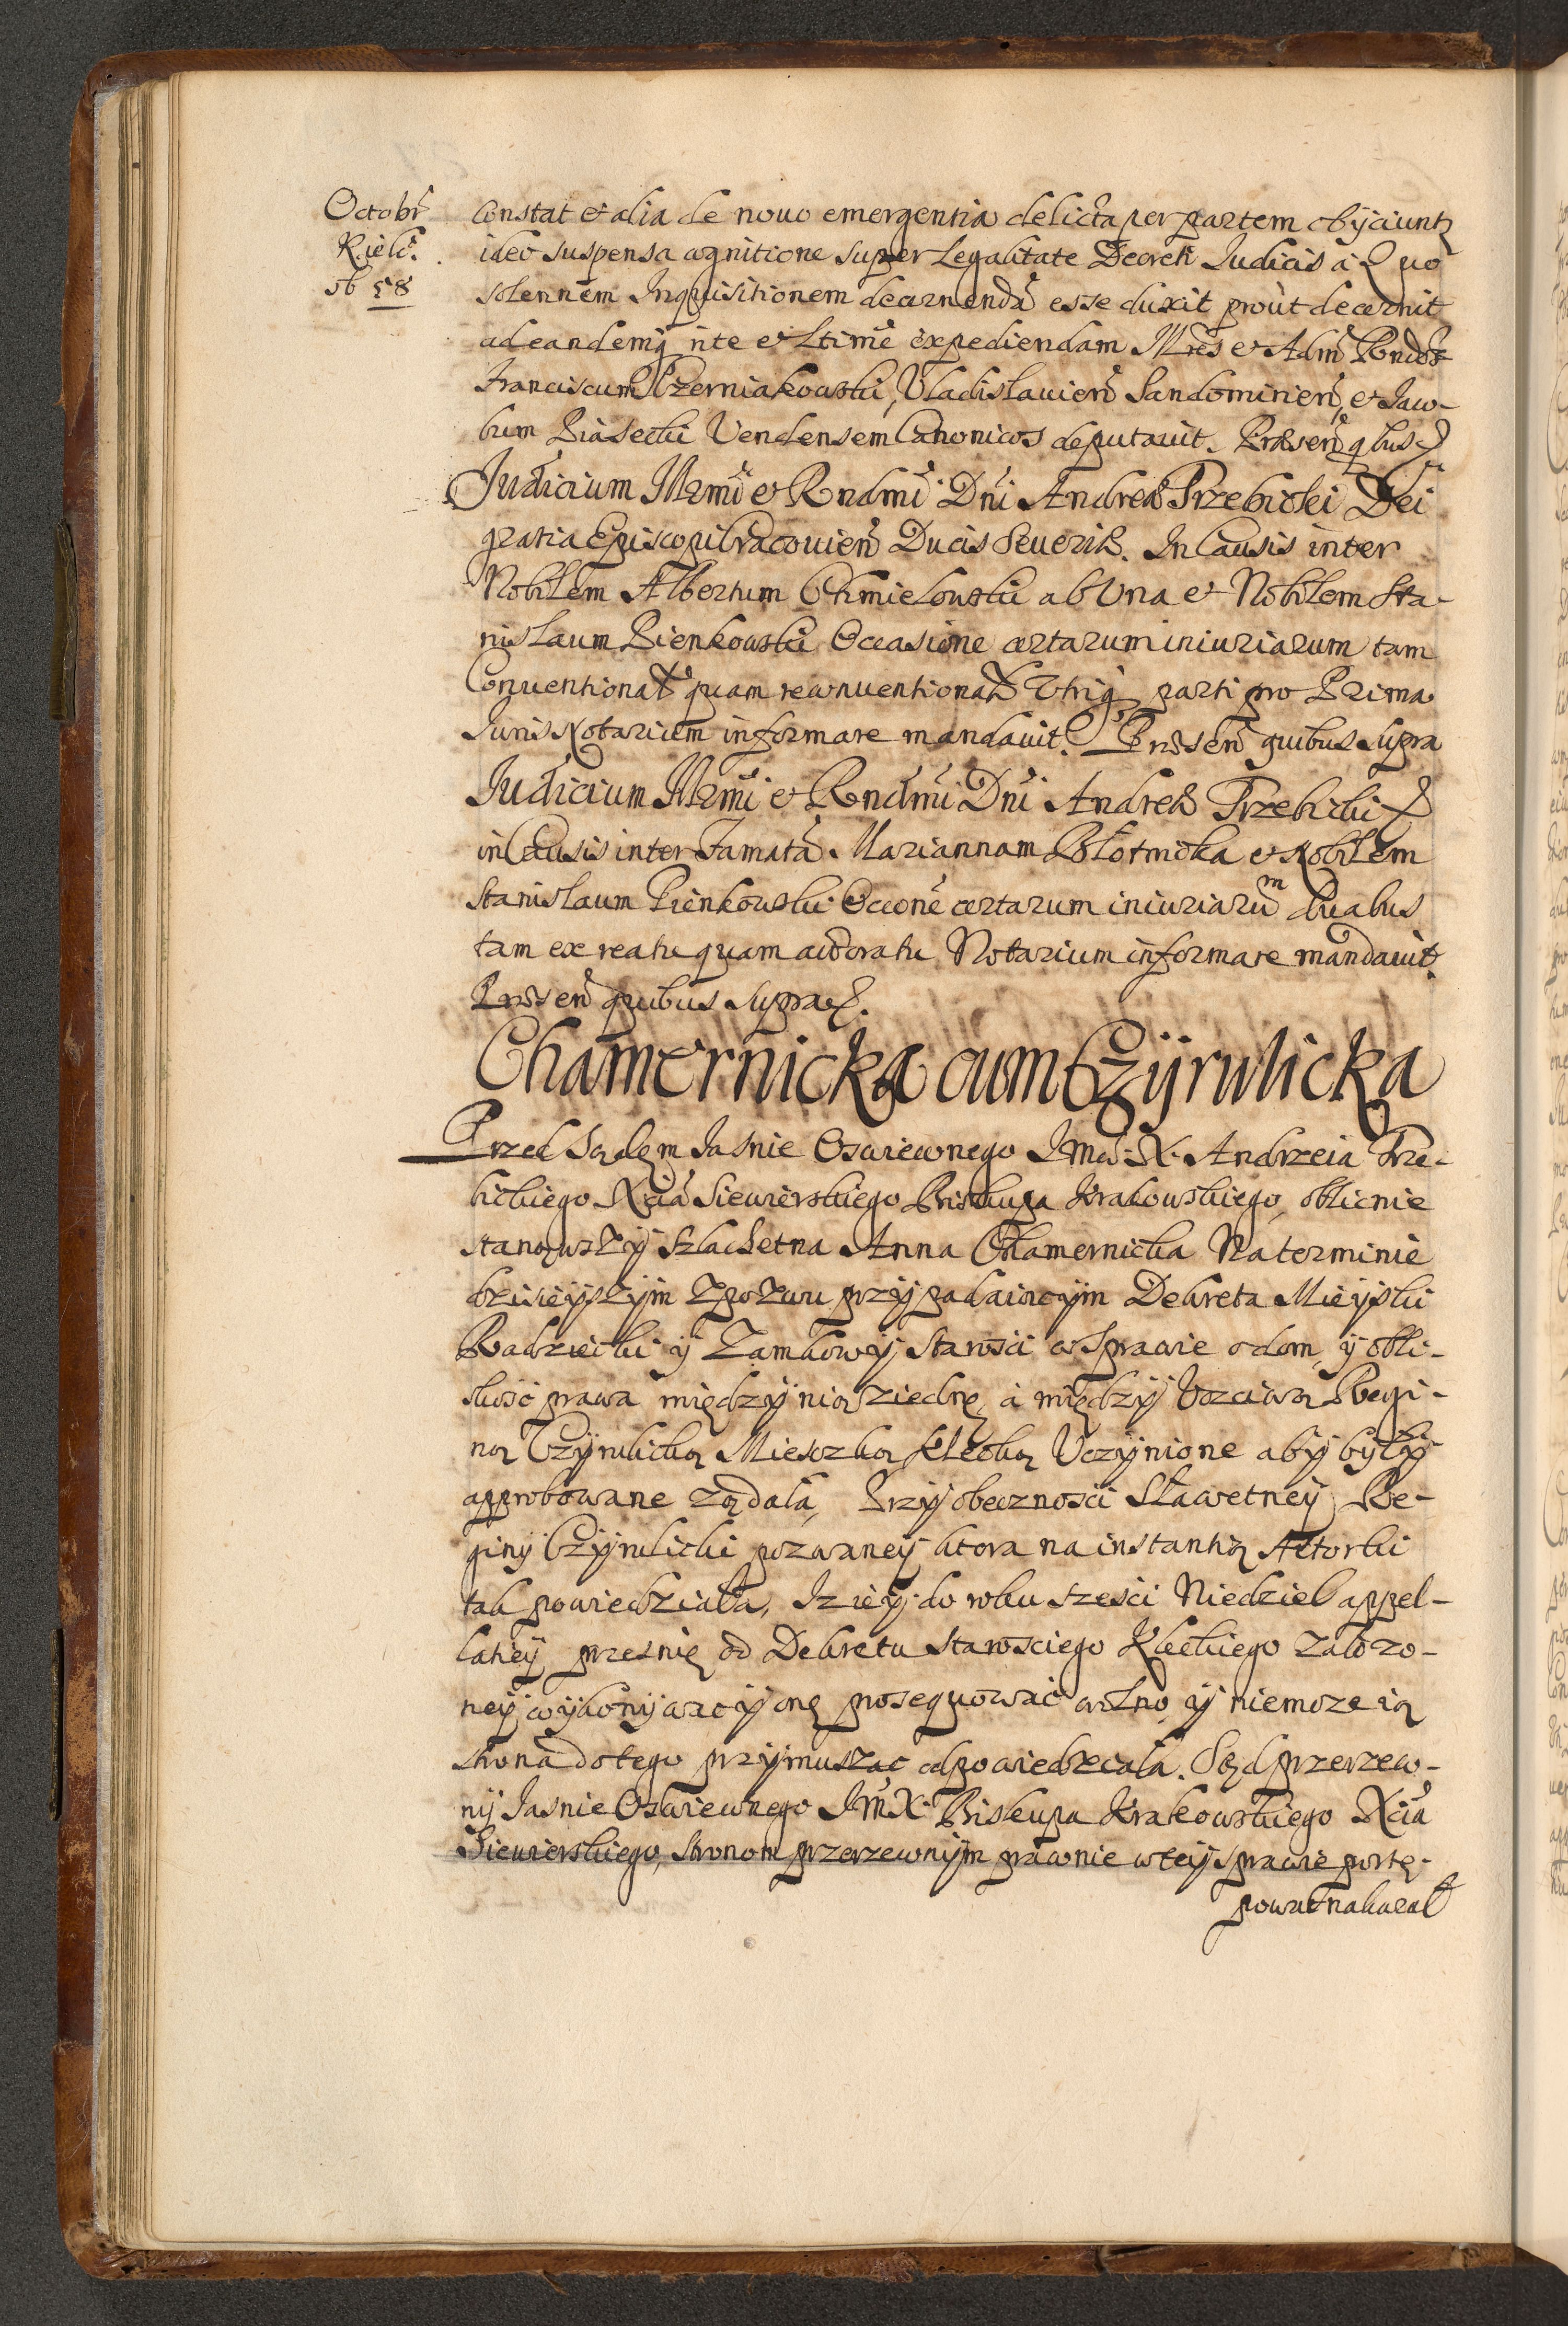 Octobr
Kielc.
16 58
Constat et alia de nouo emergentia delicta per partem obijciuntr
ideo suspensa cognitione super Legalitate Decreti Iudicis à Quo
solennem Inquisitionem decernendã esse duxit prout decernit
ad eandemq rite et Ltime expediendam Illres et Adm Rndos
Franciscum Czerniakowski, Vladislauien Sandomirien, et Iaco-
bum Piasecki Vendensem Canonicos deputauit. Præsen qbus
Judicium Illrmi et Rndmi Dni Andreæ Trzebicki Dei
gratia Episcopi Cracouien Ducis Seueriæ. In Causis inter
Nobilem Albertum Chmielowski ab Vna et Nobilem Sta-
nislaum Pienkowski Occasione certarum iniuriarum tam
Conuentional quam reconuentional Vtriq parti pro Prima
Iuris Notarium informare mandauit. Præsen quibus supra
Judicium Illrmi et Rndmi Dni Andreæ Trzebicki
in Causis inter Famatã Mariannam Błotnicka et Nobilem
Stanislaum Pienkowski Occone certarum iniuriarum duabus
tam ex reatu quam actoratu Notarium informare mandauit.
Præsen quibus supra.
Chamernicka cum Czÿrulicka
Przed Sądem Iasnie Oswieconego Imci X. Andrzeia Trze-
bickiego Xcia Siewierskiego Biskupa Krakowskiego, oblicnie
stanąwszÿ Szlachetna Anna Chamernicka Na terminie
dzisieÿszÿm Z pozwu przÿpadaiącÿm Dekreta Mieÿski
Radziecki ÿ Zamkowÿ Starosci w sprawie o dom, ÿ obli-
skość prawa międzÿ nią z iednę, a międzÿ Vczciwą Regi-
ną Czÿrulicką Miesczką Klecką Vczÿnione abÿ bÿłÿ
approbowane ządała, Przÿ obecznosci Sławetneÿ Re-
ginÿ Czÿrulicki pozwaneÿ ktora na instantią Aktorki
tak powiedziała, Iz ieÿ do roku szesci Niedziel appel-
latieÿ przesnię od Dekretu Starosciego Kleckiego załozo-
neÿ wÿkonÿwac ÿ onę prosequować wolno, ÿ niemoze ią
strona do tego przÿmuszac odpowiedzieała. Sąd przerzeczo-
nÿ Iasnie Oswieconego Im X. Biskupa Krakowskiego Xcia
Siewierskiego, stronom przerzeczonÿm prawnie w teÿ sprawie postę-
powac nakazał